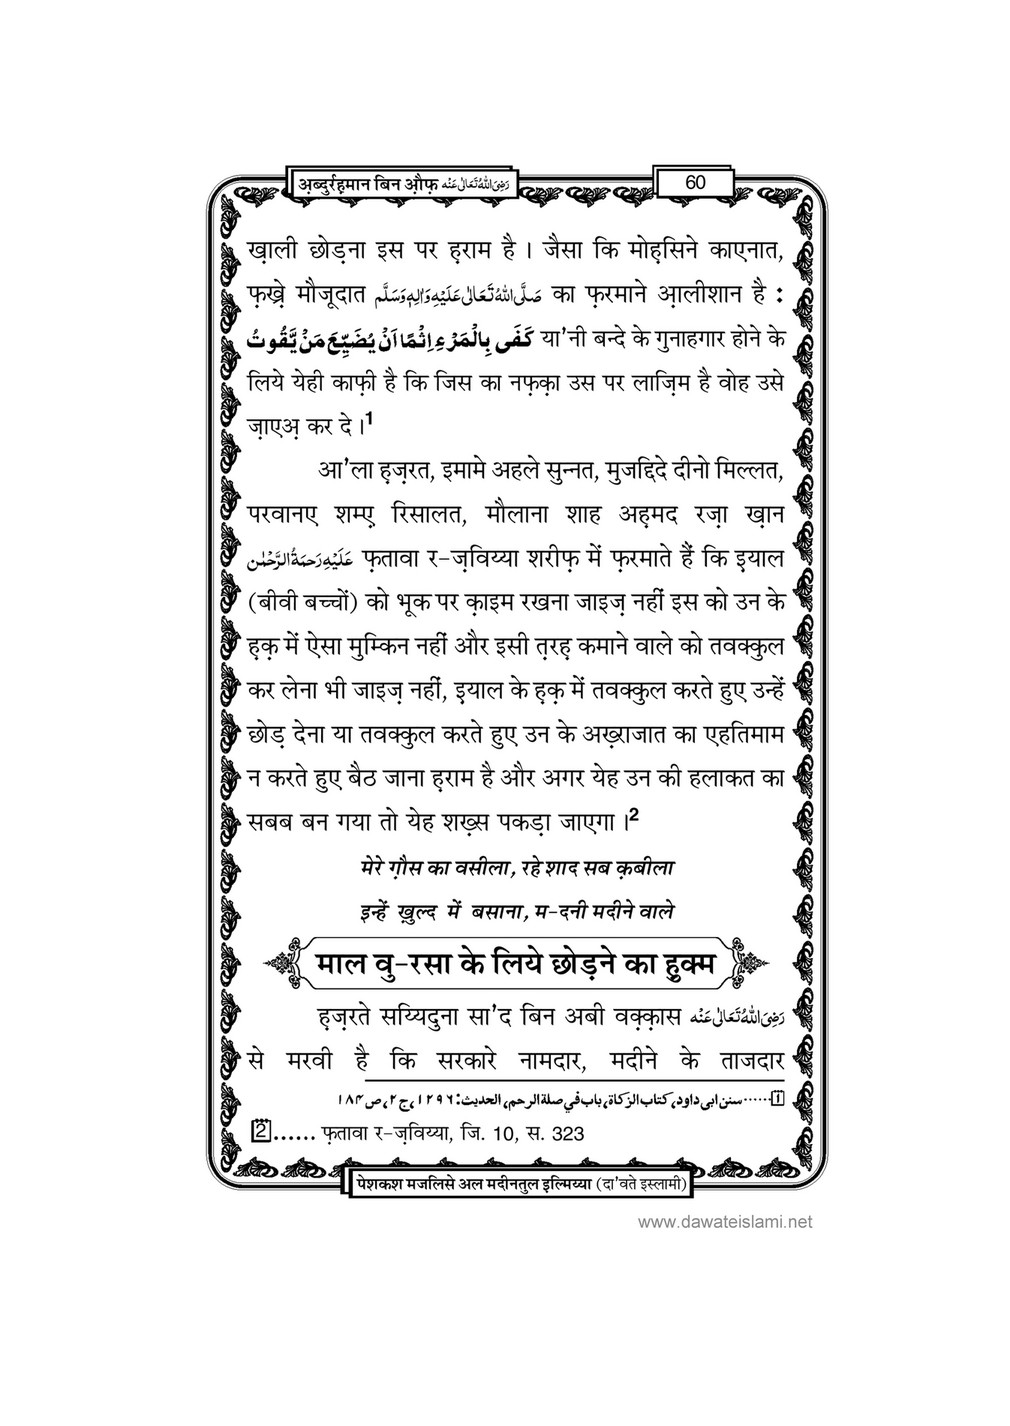 अ़ब्दुर्रह़मान बिन औ़फ़ رَضِیَ اللّٰهُ تَعَالٰی عَنْه
60
ख़ाली छोड़ना इस पर ह़राम है । जैसा कि मोह़सिने काएनात,
फ़ख़्रे मौजूदात صَلَّی اللّٰهُ تَعَالٰی عَلَیْهِ وَاٰلِهٖ وَسَلَّم का फ़रमाने आ़लीशान है :
كَفٰى بِالْمَرْءِ اِثْمًا اَنْ يُضَيِّعَ مَنْ يَّقُوتُ या’नी बन्दे के गुनाहगार होने के
लिये येही काफ़ी है कि जिस का नफ़्क़ा उस पर लाज़िम है वोह उसे
ज़ाएअ़ कर दे ।1
आ’ला ह़ज़रत, इमामे अहले सुन्नत, मुजद्दिदे दीनो मिल्लत,
परवानए शम्ए़ रिसालत, मौलाना शाह अह़मद रज़ा ख़ान
عَلَیْهِ رَحمَةُ الرَّحْمٰن फ़तावा र-ज़विय्या शरीफ़ में फ़रमाते हैं कि इ़याल
(बीवी बच्चों) को भूक पर क़ाइम रखना जाइज़ नहीं इस को उन के
ह़क़ में ऐसा मुम्किन नहीं और इसी त़रह़ कमाने वाले को तवक्कुल
कर लेना भी जाइज़ नहीं, इ़याल के ह़क़ में तवक्कुल करते हुए उन्हें
छोड़ देना या तवक्कुल करते हुए उन के अख़्राजात का एहतिमाम
न करते हुए बैठ जाना ह़राम है और अगर येह उन की हलाकत का
सबब बन गया तो येह शख़्स पकड़ा जाएगा ।2
मेरे ग़ौस का वसीला, रहे शाद सब क़बीला
इन्हें ख़ुल्द में बसाना, म-दनी मदीने वाले
माल वु-रसा के लिये छोड़ने का हु़क्म
ह़ज़रते सय्यिदुना सा’द बिन अबी वक़्क़ास رَضِیَ اللّٰهُ تَعَالٰی عَنْه
से मरवी है कि सरकारे नामदार, मदीने के ताजदार
1......سنن ابی داود، کتاب الزکاة، باب فی صلة الرحم، الحدیث: ۱۲۹۶، ج۲، ص۱۸۴
2...... फ़तावा र-ज़विय्या, जि. 10, स. 323
पेशकश मजलिसे अल मदीनतुल इल्मिय्या (दा’वते इस्लामी)
www.dawateislami.net